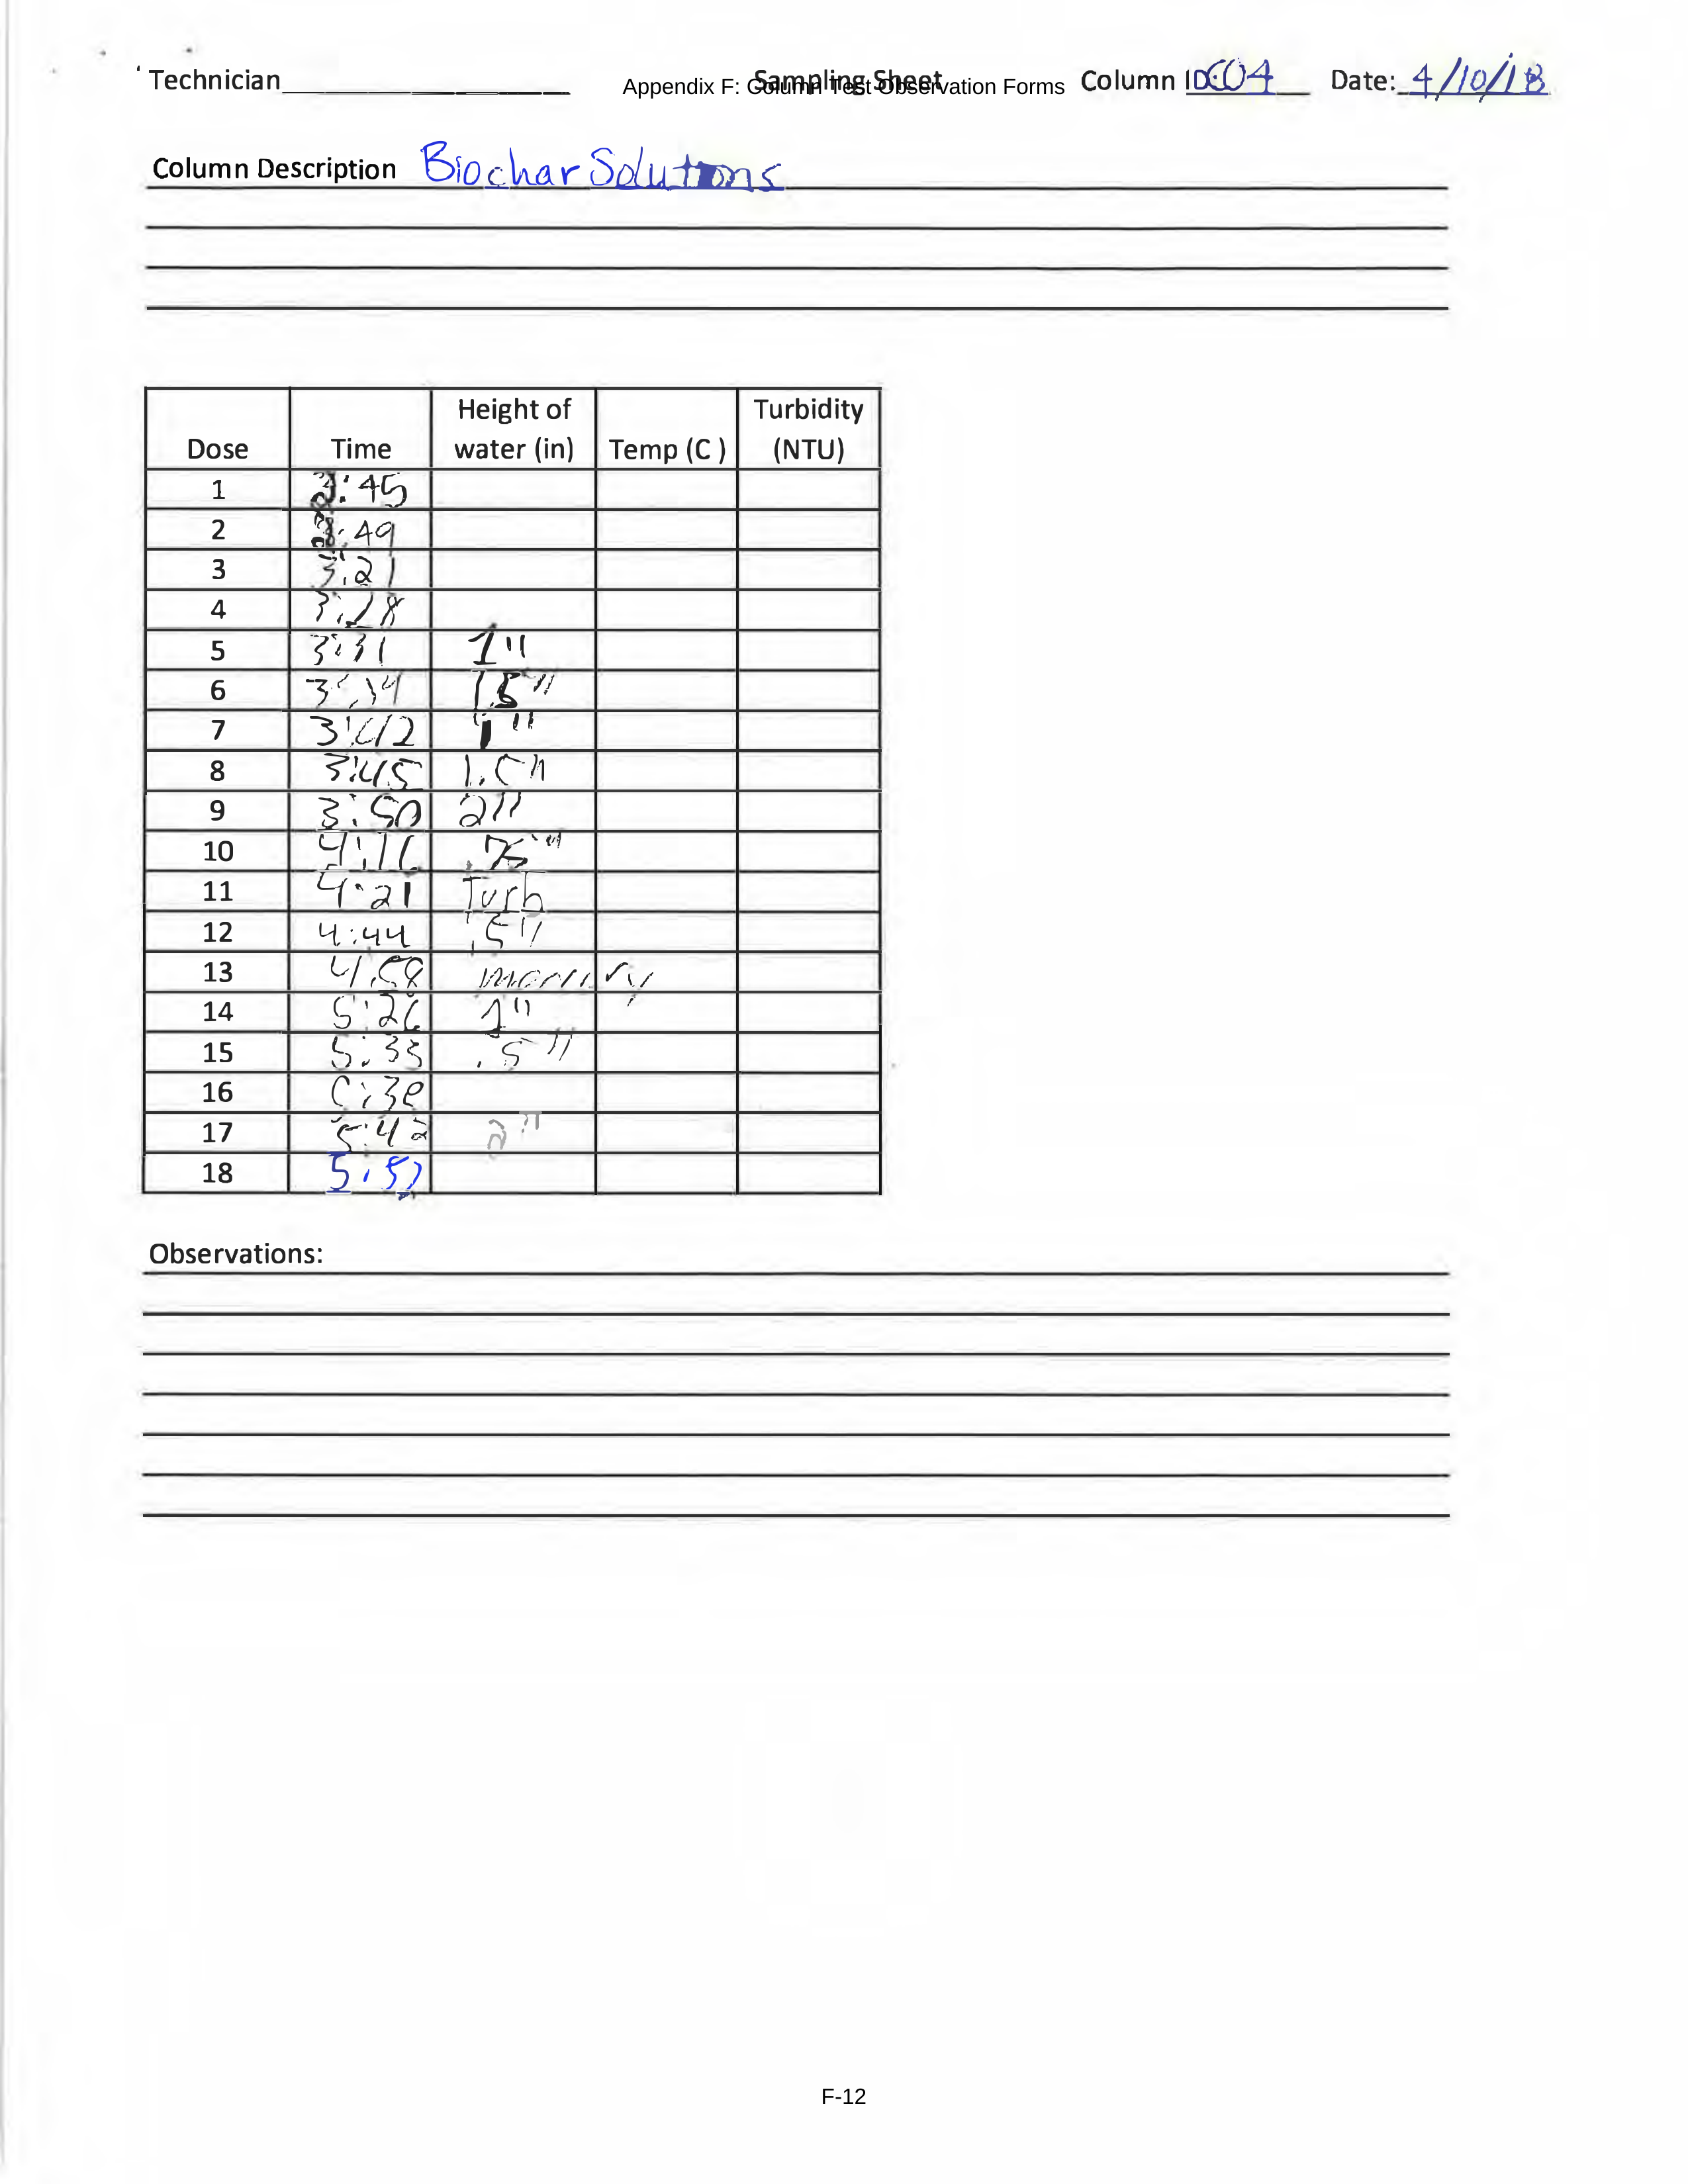 Technician
Appendix F: Column Test Observation Forms
Sampling Sheet
Column ID: C04
Date: 4/10/18
Column Description Biochar Solutions
Dose Time Height of water (in) Temp (C ) Turbidity (NTU)
1 2:45
2 :49
3 3:21
4 3:28
5 3:31 1"
6 3:34 1.5"
7 3:42 1"
8 3:45 1.5"
9 3:50 2"
10 4:16 .75"
11 4:21 Turb
12 4:44 .5"
13 4:58
14 5:26 1"
15 5:33 .5"
16
17 5:42 2"
18 5:52
Observations:
F-12